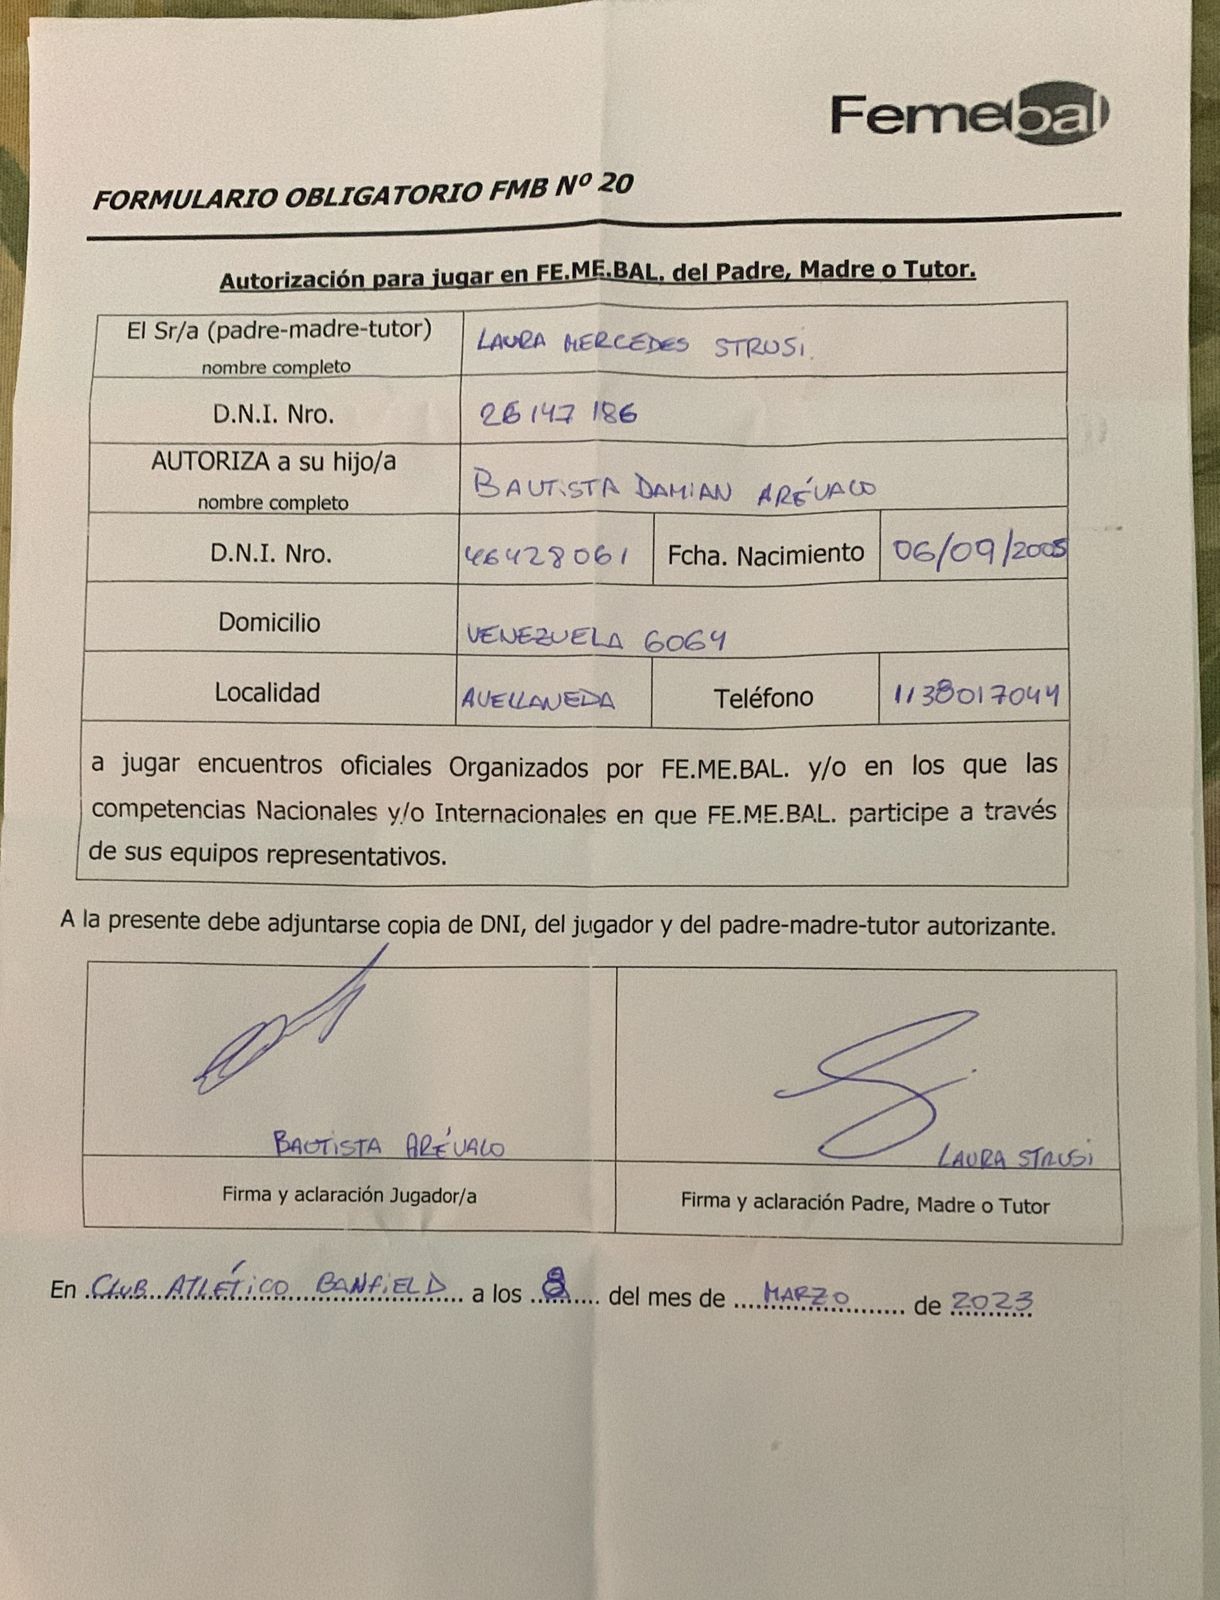 Femebal
FORMULARIO OBLIGATORIO FMB Nº 20
Autorización para jugar en FE.ME.BAL. del Padre, Madre o Tutor.
El Sr/a (padre-madre-tutor) LAURA MERCEDES STRUSI.
nombre completo
D.N.I. Nro. 26147186
AUTORIZA a su hijo/a BAUTISTA DAMIAN ARÉVALO
nombre completo
D.N.I. Nro. 46428061 Fcha. Nacimiento 06/09/2005
Domicilio VENEZUELA 6064
Localidad AVELLANEDA Teléfono 1138017044
a jugar encuentros oficiales Organizados por FE.ME.BAL. y/o en los que las
competencias Nacionales y/o Internacionales en que FE.ME.BAL. participe a través
de sus equipos representativos.
A la presente debe adjuntarse copia de DNI, del jugador y del padre-madre-tutor autorizante.
BAUTISTA ARÉVALO LAURA STRUSI
Firma y aclaración Jugador/a Firma y aclaración Padre, Madre o Tutor
En CLUB ATLÉTICO BANFIELD a los 8 del mes de MARZO de 2023